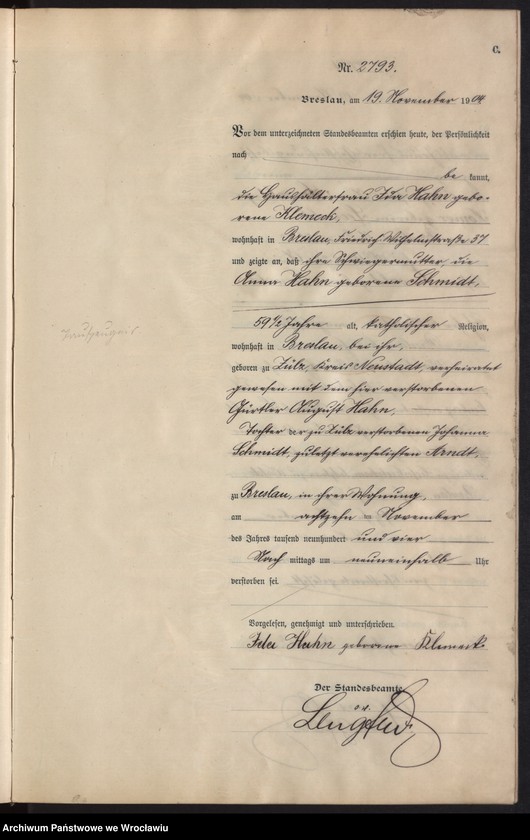 C.
Nr. 2793.
Breslau, am 19. November 1904
Vor dem unterzeichneten Standesbeamten erschien heute, der Persönlichkeit
nach
be kannt,
die Haushälterfrau Ida Hahn gebo-
rene Klemeck,
wohnhaft in Breslau, Friedrich Wilhelmstraße 37
und zeigte an, daß ihre Schwiegermutter, die
Anna Hahn geborene Schmidt,
59 1/2 Jahre alt, katholischer Religion,
wohnhaft in Breslau, bei ihr,
geboren zu Zülz, Kreis Neustadt, verheiratet
gewesen mit dem hier verstorbenen
Gürtler August Hahn,
Tochter der zu Zülz verstorbenen Johanna
Schmidt, zuletzt verehelichten Arndt,
zu Breslau, in ihrer Wohnung,
am achtzehn ten November
des Jahres tausend neunhundert und vier
Nach mittags um neuneinhalb Uhr
verstorben sei.
Vorgelesen, genehmigt und unterschrieben.
Ida Hahn geborene Klemeck
Der Standesbeamte.
Archiwum Państwowe we Wrocławiu